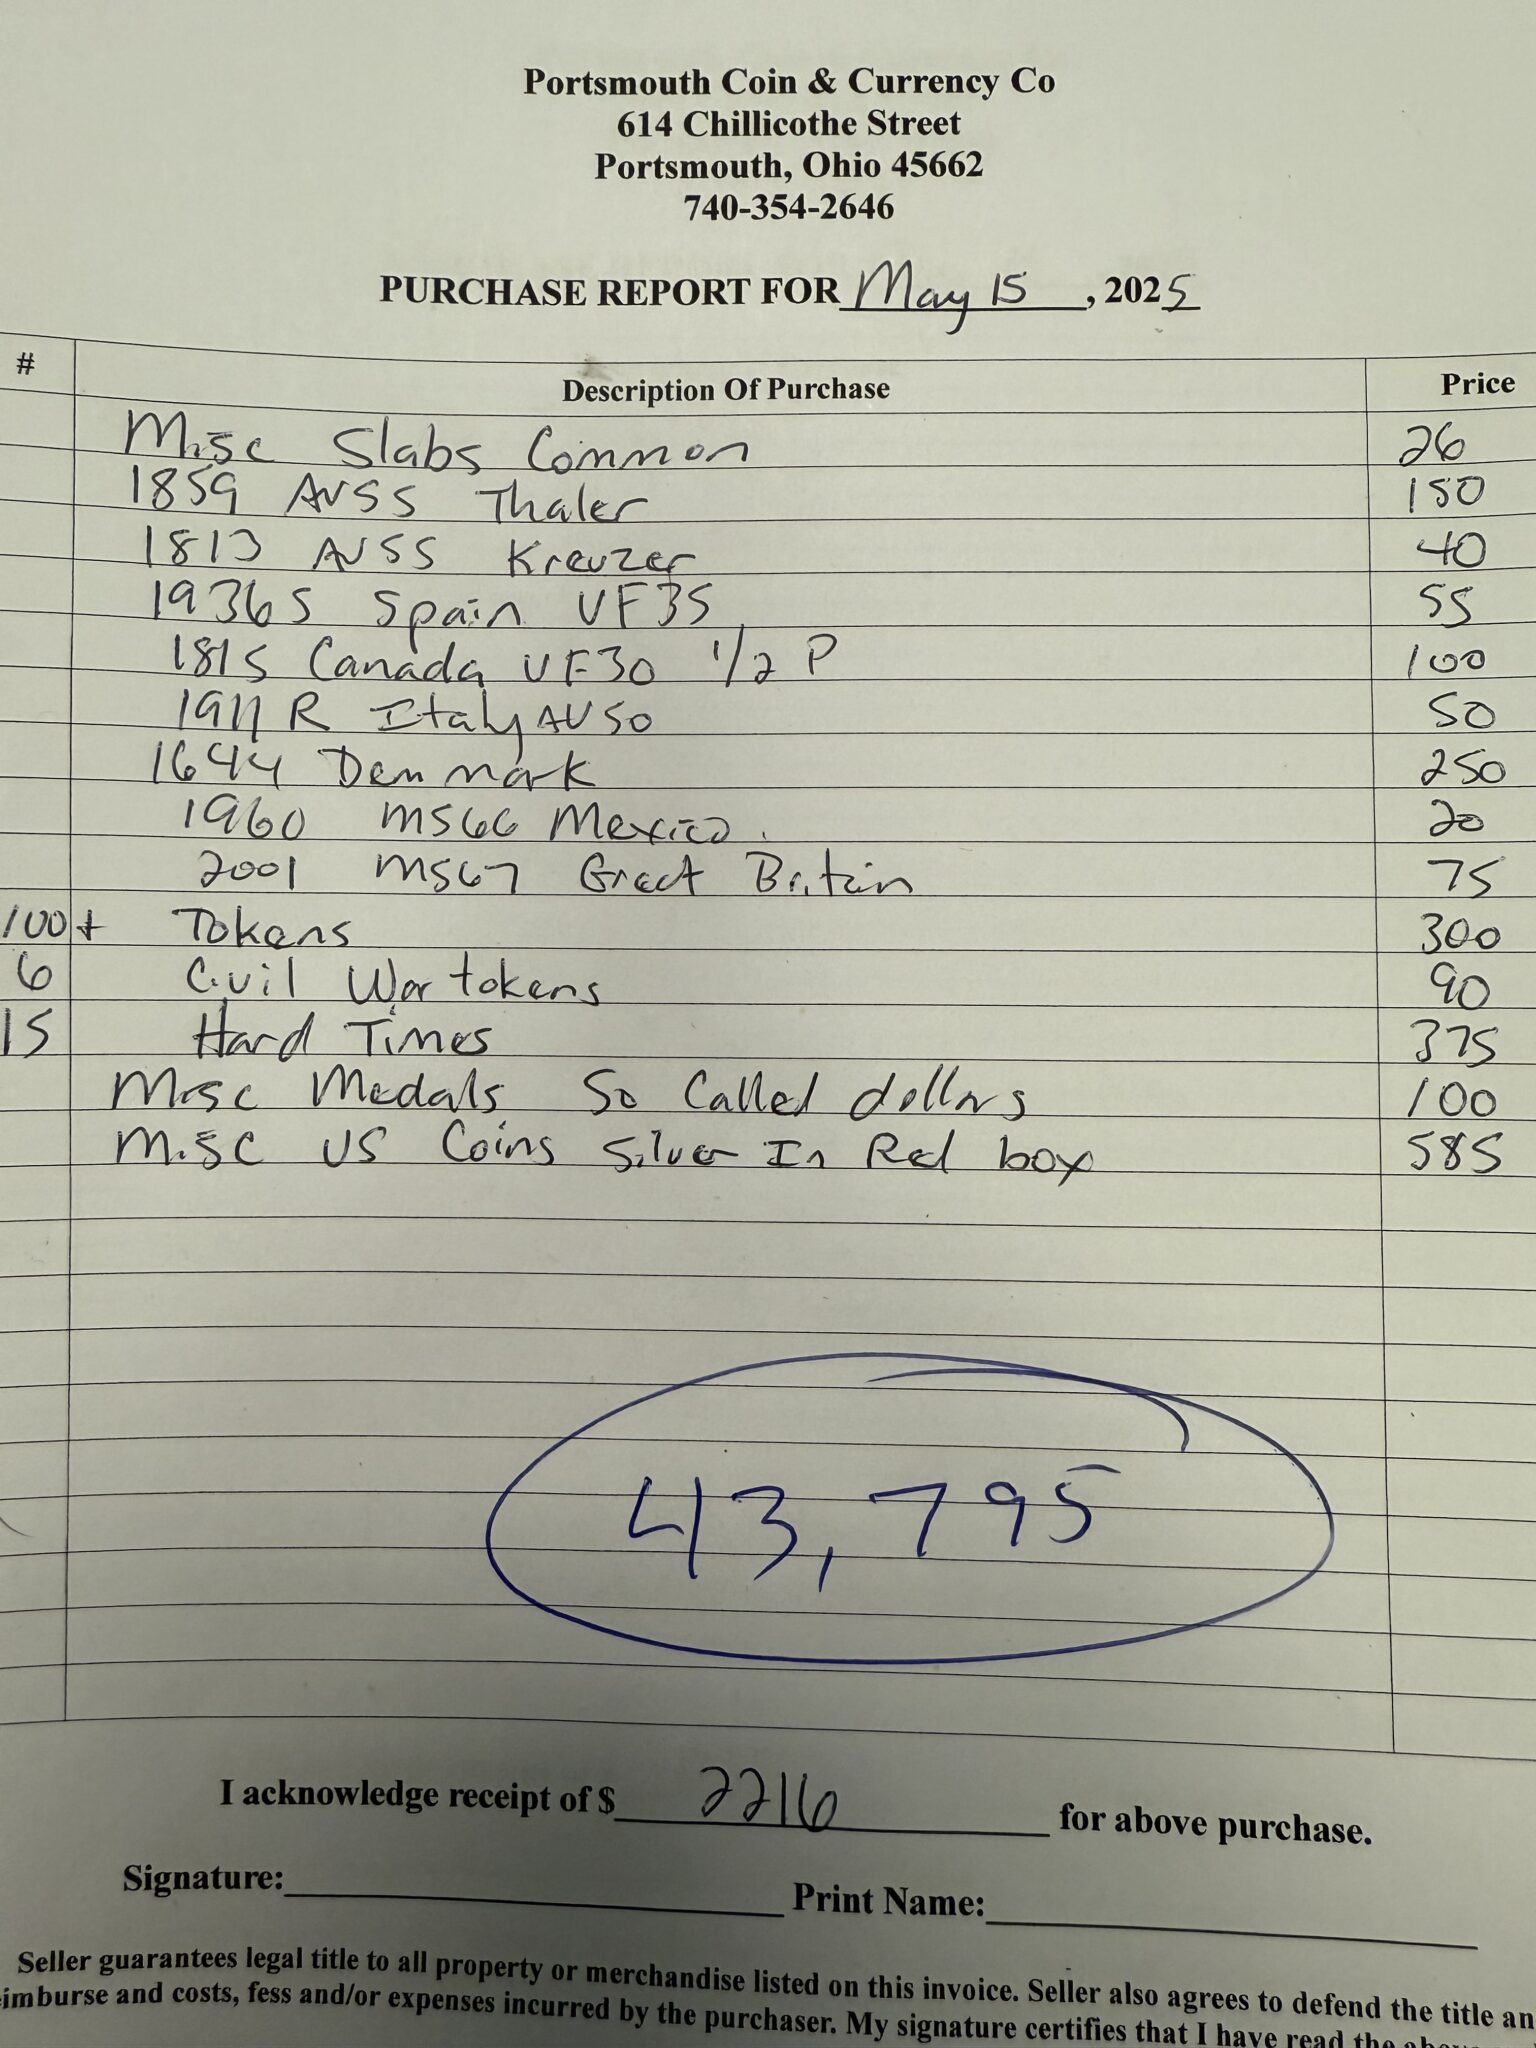 Portsmouth Coin & Currency Co
614 Chillicothe Street
Portsmouth, Ohio 45662
740-354-2646
PURCHASE REPORT FOR May 15, 2025
# Description Of Purchase Price
Misc Slabs Common 26
1859 AU55 Thaler 150
1813 AU55 Kreuzer 40
1936 S Spain VF35 55
1815 Canada VF30 1/2 P 100
1911 R Italy AU50 50
1644 Denmark 250
1960 MS66 Mexico 20
2001 MS67 Great Britain 75
100+ Tokens 300
6 Civil War tokens 90
15 Hard Times 375
Misc Medals So Called dollars 100
Misc US Coins Silver In Red box 585
43,795
I acknowledge receipt of $ 2216 for above purchase.
Signature: Print Name:
Seller guarantees legal title to all property or merchandise listed on this invoice. Seller also agrees to defend the title an
imburse and costs, fess and/or expenses incurred by the purchaser. My signature certifies that I have read the above